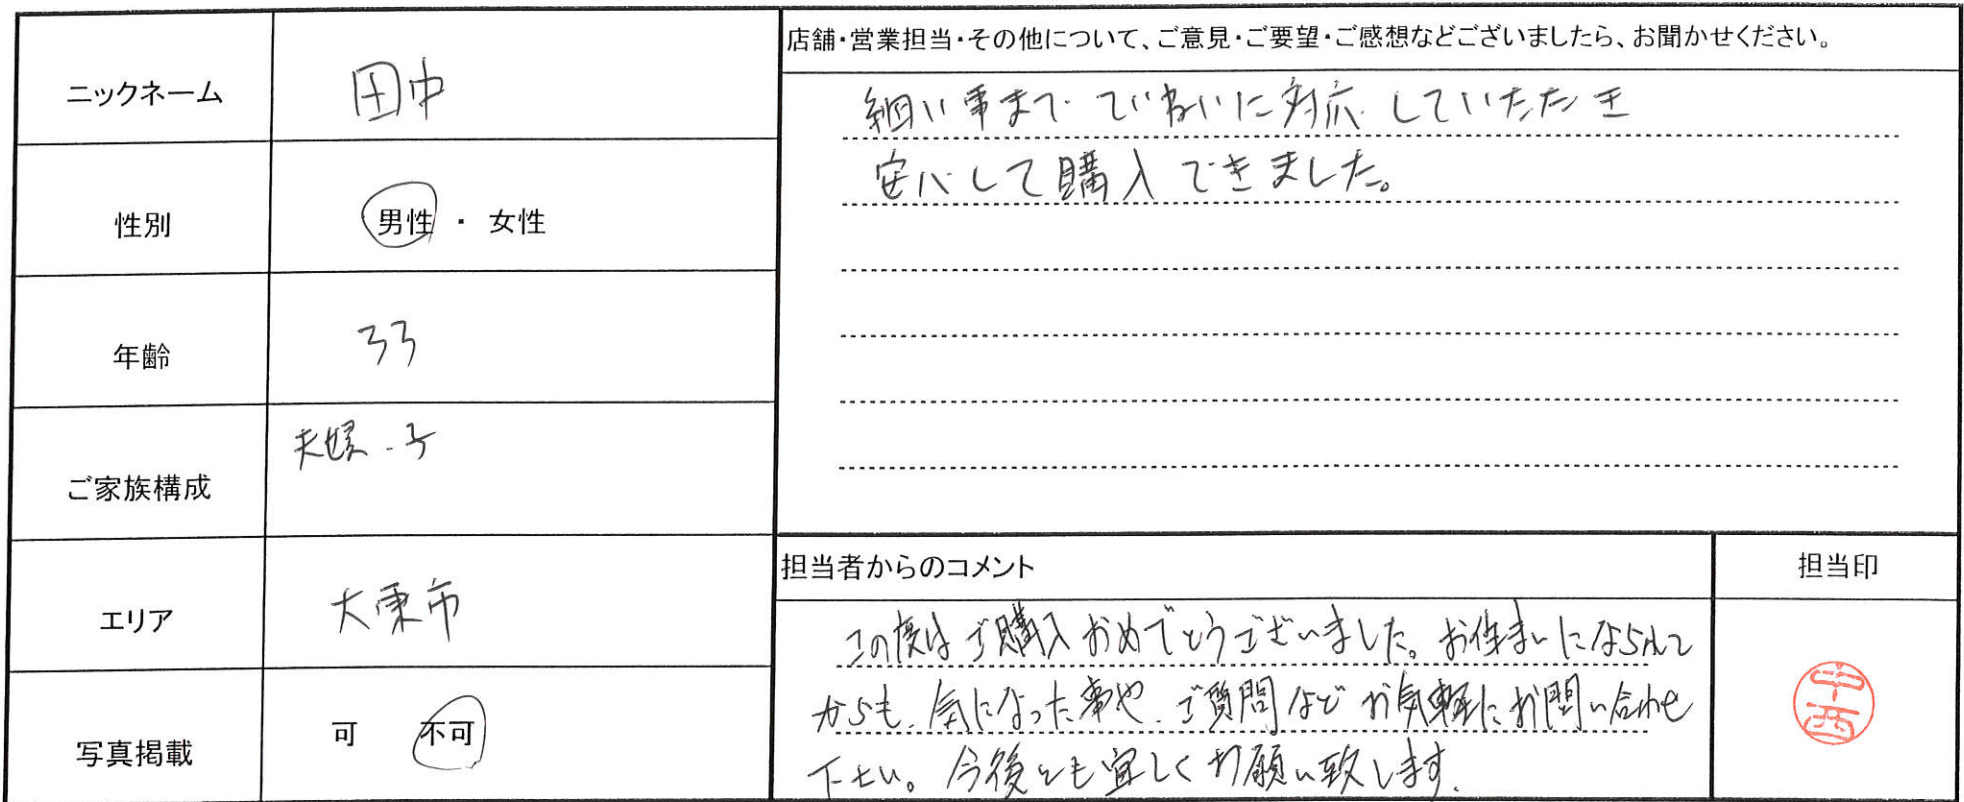 ニックネーム 田中
性別 男性 ・ 女性
年齢 33
ご家族構成 夫婦・子
エリア 大東市
写真掲載 可 不可
店舗・営業担当・その他について、ご意見・ご要望・ご感想などございましたら、お聞かせください。
細い事まで ていねいに対応していただき
安心して購入できました。
担当者からのコメント
この度はご購入おめでとうございました。お住まいになられて
からも、気になった事や、ご質問などお気軽にお問い合わせ
下さい。今後とも宜しくお願い致します。
担当印
中西